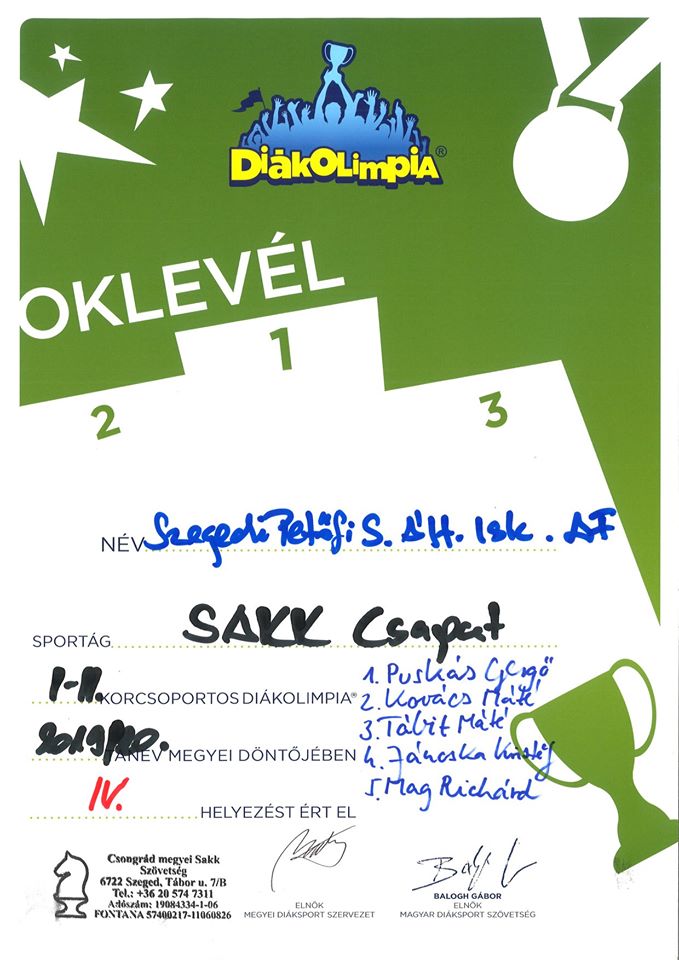 DiákOLimpiA®
OKLEVÉL
1
2
3
NÉV Szegedi Petőfi S. Ált. Isk. AF
SPORTÁG SAKK Csapat
I-II. KORCSOPORTOS DIÁKOLIMPIA®
2019/20. TANÉV MEGYEI DÖNTŐJÉBEN
IV. HELYEZÉST ÉRT EL
1. Puskás Gergő
2. Kovács Máté
3. Tábit Máté
4. Jáncska Kristóf
5. Mag Richárd
Csongrád megyei Sakk
Szövetség
6722 Szeged, Tábor u. 7/B
Tel.: +36 20 574 7311
Adószám: 19084334-1-06
FONTANA 57400217-11060826
ELNÖK
MEGYEI DIÁKSPORT SZERVEZET
BALOGH GÁBOR
ELNÖK
MAGYAR DIÁKSPORT SZÖVETSÉG